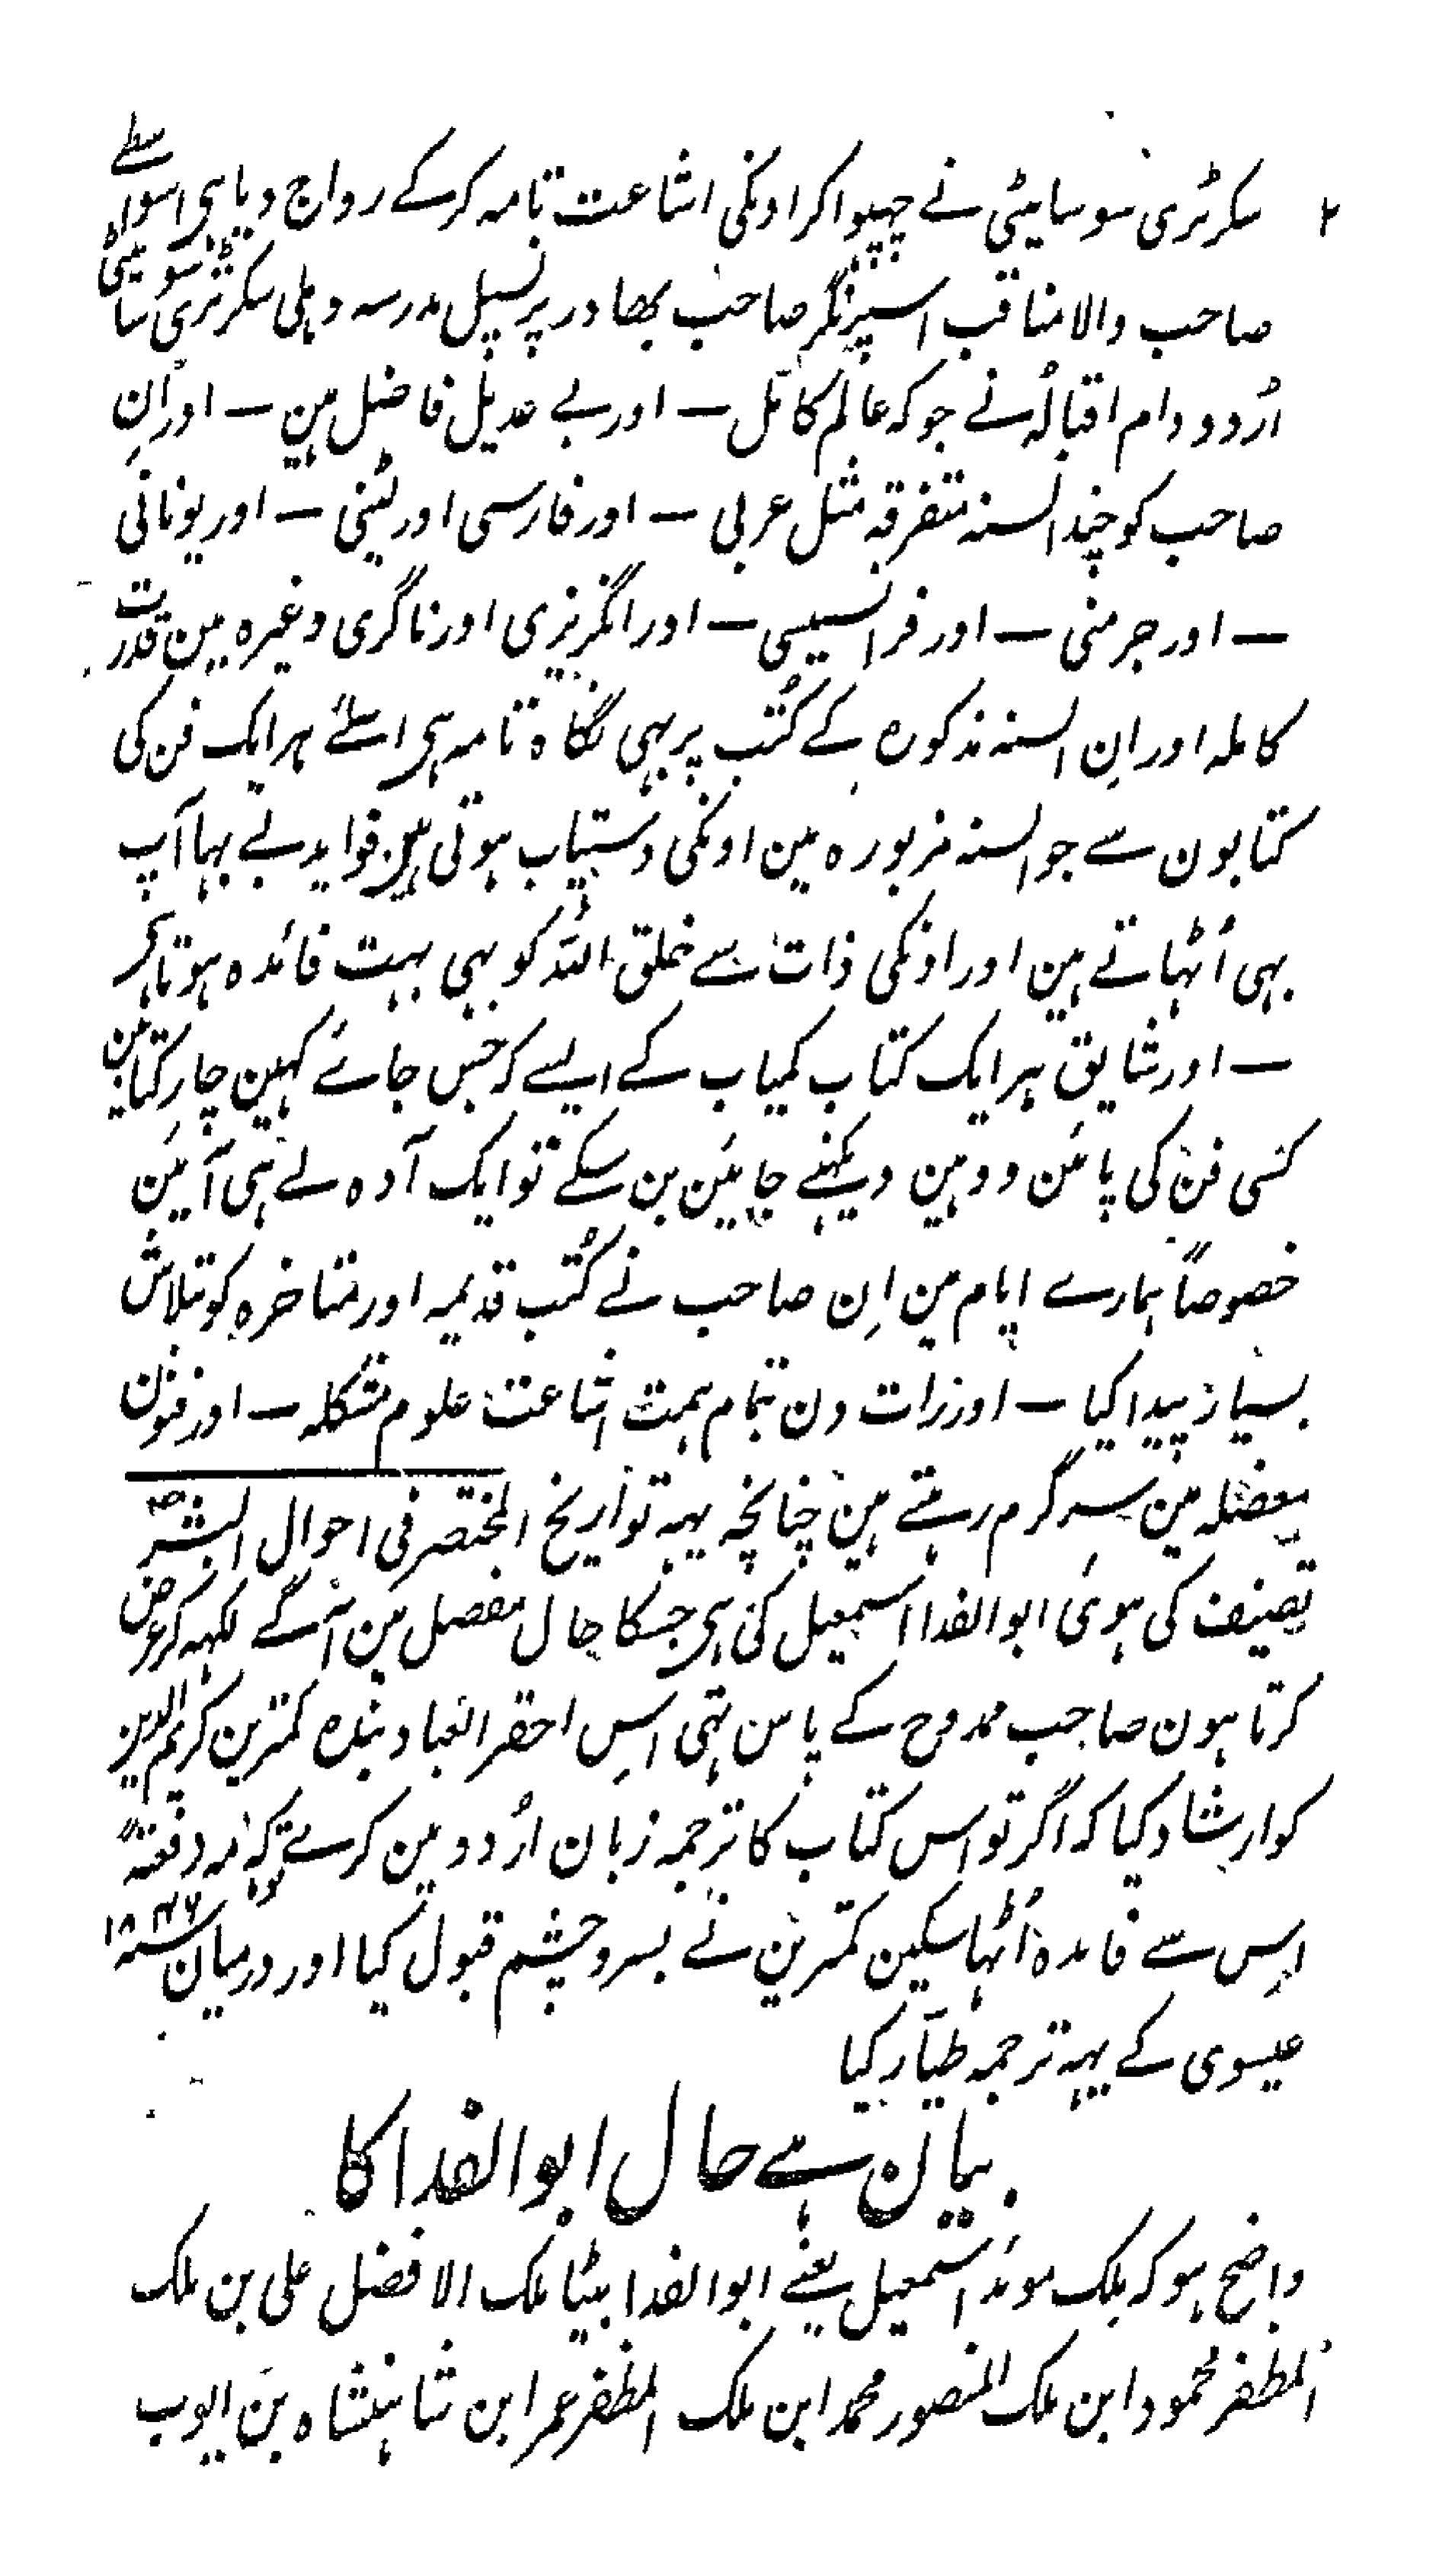 ۲ سکرٹری سوسایٹی نے چهپوا کر اونکی اشاعت تامہ کرکے رواج دیا ہی اسواسطے
صاحب والا مناقب اسپرنگر صاحب بهادر پرنسپل مدرسہ دہلی سکرٹری سوسایٹی
اُردو دام اقبالُہ نے جو کہ عالم کامل — اور بے عدیل فاضل ہین — اور اُن
صاحب کو چند السنہ متفرقہ مثل عربی — اور فارسی اور لٹینی — اور یونانی
— اور جرمنی — اور فرانسیسی — اور انگریزی اور ناگری وغیرہ مین قدرت
کاملہ اور اِن السنہ مذکورہ کے کُتب پر بہی نگاہ تامہ ہی اسلئے ہر ایک فن کی
کتابون سے جو السنہ مزبورہ مین اونکی دستیاب ہوتی ہین فواید بے بہا آپ
بہی اُٹہاتے ہین اور اونکی ذات سے خلق اللہ کو بہی بہت فائدہ ہوتا ہی
— اور شایق ہر ایک کتاب کمیاب کے ایسے کہ جس جائے کہین چار کتابین
کسی فن کی پائین دوہین دیکہنے جایئن بن سکے تو ایک آدہ لے ہی آیئن
خصوصاً ہمارے ایام مین اِن صاحب نے کُتب قدیمہ اور متاخرہ کو تلاش
بسیار پیدا کیا — اور رات دن تمام ہمت اشاعت علوم مشکلہ — اور فنون
معضلہ مین سرگرم رہتے ہین چنانچہ یہہ تواریخ المختصر فی احوال البشر
تصنیف کی ہوئی ابوالفدا اسمعیل کی ہی جسکا حال مفصل مین آگے لکہہ کر عرض
کرتا ہون صاحب ممدوح کے پاس تہی اسِ احقر العباد بندہ کمترین کریم الدین
کو ارشاد کیا کہ اگر تو اس کتاب کا ترجمہ زبان اُردو مین کرے تو کہ و مہ دفعتہً
اسِ سے فایدہ اُٹہا سکین کمترین نے بسر و چشم قبول کیا اور درمیان سنہ ۱۸۴۶
عیسوی کے یہہ ترجمہ طیّار کیا
بیان ہے حال ابوالفدا کا
واضح ہو کہ ملک موئد اسمعیل یعنے ابوالفدا بیٹا ملک الافضل علی بن ملک
المظفر محمود ابن ملک المنصور محمد ابن ملک المظفر عمر ابن شاہنشاہ بن ایوب